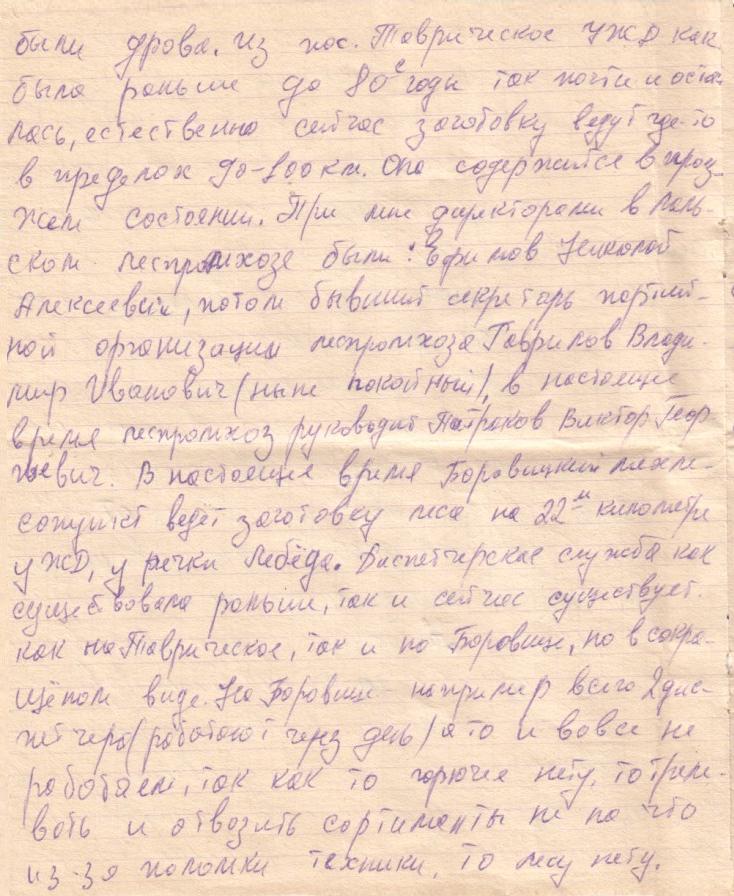 были дрова. Из пос. Таврическое УЖД как
была раньше до 80х годы так почти и оста-
лась, естественно сейчас заготовку ведут где-то
в пределах 90-100 км. Она содержится в проез-
жем состоянии. При мне директорами в Лоль-
ском леспромхозе были: Ефимов Николай
Алексеевич, потом бывший секретарь партий-
ной организации леспромхоза Гаврилов Влади-
мир Иванович (ныне покойный), в настоящее
время леспромхоз руководит Патраков Виктор Геор
гиевич. В настоящее время Боровицкий мехле-
сопункт ведёт заготовку леса на 22м километре
УЖД, у речки Лебёда. Диспетчерская служба как
существовала раньше, так и сейчас существует.
как на Таврическое, так и по Боровице, но в сокра-
щёном виде. На Боровице например всего 2 дис-
петчера (работают через день) а то и вовсе не
работаем, так как то горючее нету, то трем-
вать и отвозить сортименты не на что
из-за поломки техники, то лесу нету.